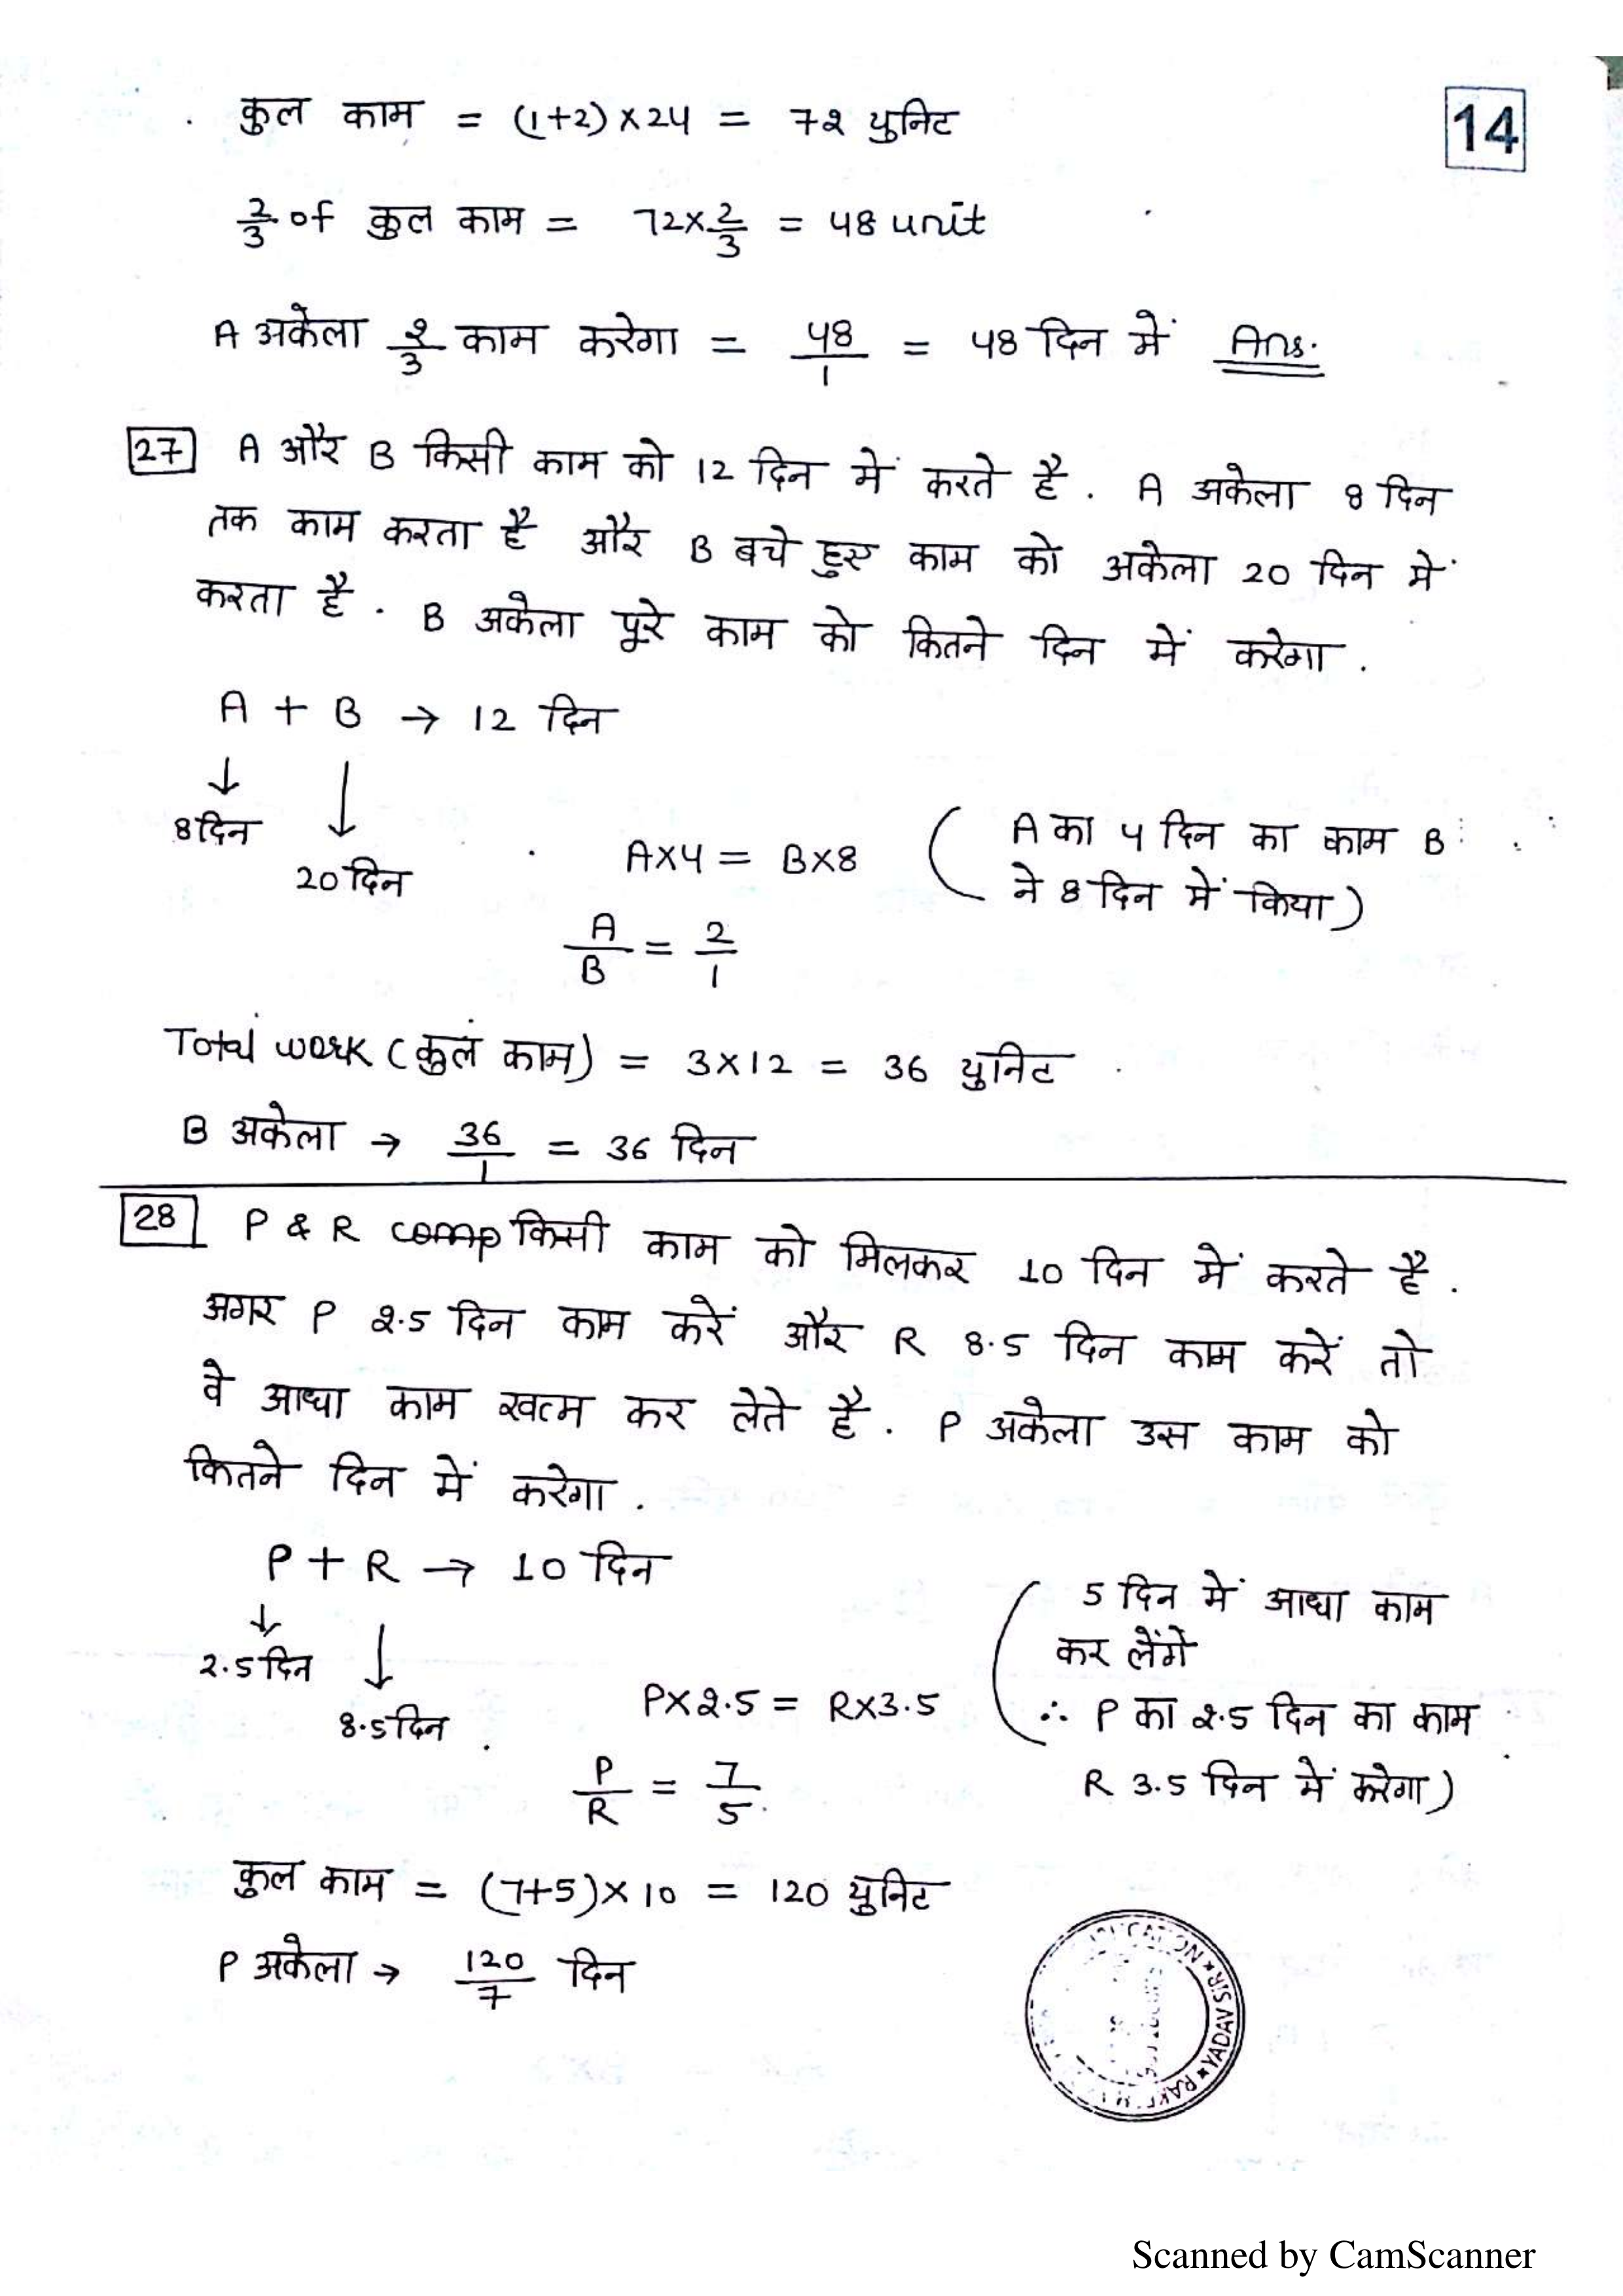 कुल काम = (1+2)×24 = 72 युनिट
14
2/3 of कुल काम = 72×2/3 = 48 unit
A अकेला 2/3 काम करेगा = 48/1 = 48 दिन में Ans.
27 A और B किसी काम को 12 दिन में करते है. A अकेला 8 दिन
तक काम करता है और B बचे हुए काम को अकेला 20 दिन में
करता है. B अकेला पूरे काम को कितने दिन में करेगा.
A + B → 12 दिन
↓ ↓
8 दिन
20 दिन
A×4 = B×8 (A का 4 दिन का काम B
ने 8 दिन में किया)
A/B = 2/1
Total work (कुल काम) = 3×12 = 36 युनिट
B अकेला → 36/1 = 36 दिन
28 P & R comp किसी काम को मिलकर 10 दिन में करते है.
अगर P 2.5 दिन काम करें और R 8.5 दिन काम करें तो
वे आधा काम खत्म कर लेते है. P अकेला उस काम को
कितने दिन में करेगा.
P + R → 10 दिन
↓ ↓
2.5 दिन
8.5 दिन
(5 दिन में आधा काम
कर लेंगे
P×2.5 = R×3.5 ∴ P का 2.5 दिन का काम
R 3.5 दिन में करेगा)
P/R = 7/5
कुल काम = (7+5)×10 = 120 युनिट
P अकेला → 120/7 दिन
YADAV SIR
Scanned by CamScanner